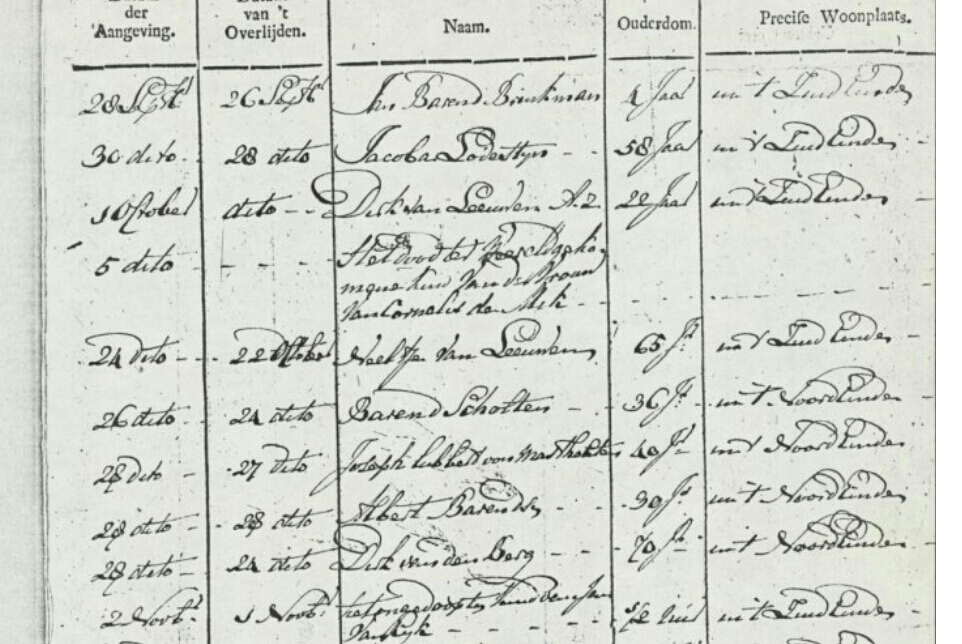 der van 't Naam. Ouderdom. Precise Woonplaats.
Aangeving. Overlijden.
28 Septr 26 Septr Jan Barend Brinkman 4 Jaar in 't Zuid Einde
30 dito 28 dito Jacoba Lodesteyn - - 58 Jaar in 't Zuid Einde -
1 October dito - - Dirk van Leeuwen A.Z. 22 Jaar in 't Zuid Einde -
5 dito - - - - Het dood ter
kind van de Vrouw
Van Cornelis de
24 dito - 22 October Neeltje van Leeuwen 65 Jr in 't Zuid Einde -
26 dito - 24 dito Barend Scholten - 36 Jr in 't Noord Einde -
28 dito - 27 dito Joseph Lubbert von 40 Jr in 't Noord Einde
28 dito - 28 dito Albert Barends - - 30 Jr in 't Noord Einde
28 dito - 24 dito Dirk van den Berg - - 70 Jr in 't Noord Einde -
2 Novbr 1 Novbr het ongedoopte kind van Jan 1/2 uur in 't Zuid Einde -
Van - - - -